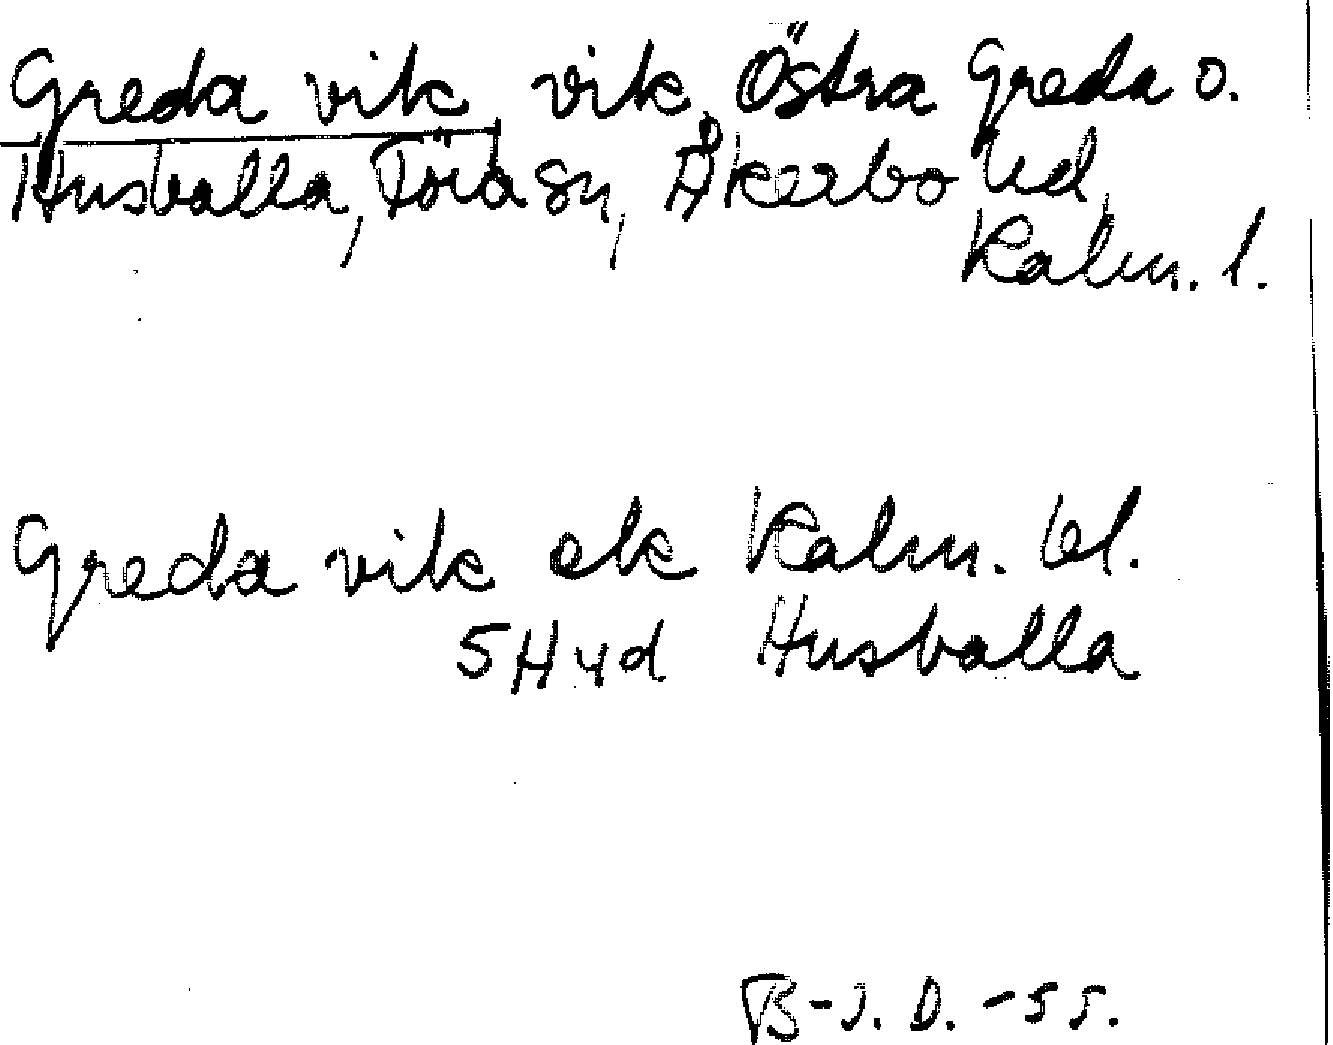 Greda vik, vik, Östra Greda o.
Husvalla, Föra sn, Åkerbo hd,
Kalm. l.
Greda vik ek Kalm. bl.
5 H yd Husvalla
B-J. D. -55.